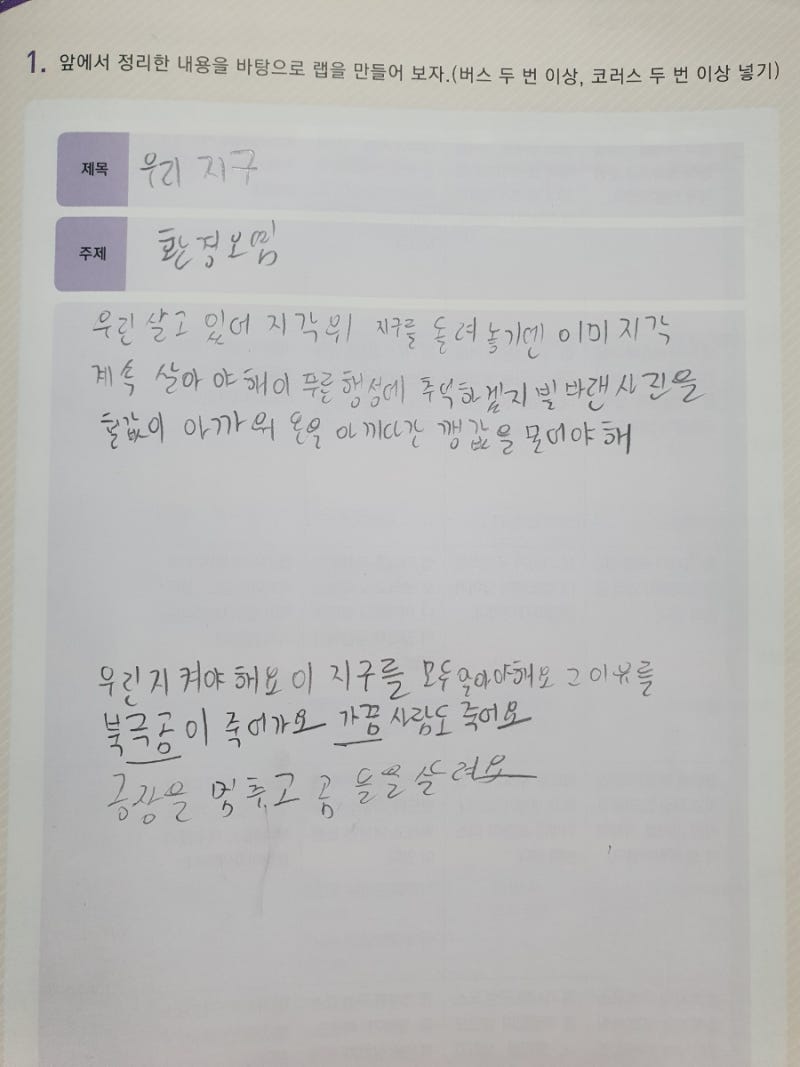 1. 앞에서 정리한 내용을 바탕으로 랩을 만들어 보자.(버스 두 번 이상, 코러스 두 번 이상 넣기)
제목 우리 지구
주제 환경오염
우린 살고 있어 지각위 지구를 돌려 놓기엔 이미 지각
계속 살아 야 해 이 푸른 행성에 추억하겠지 빛 바랜 사진을
아까워 돈을 아끼다간 깽값을 물어야 해
우린 지켜야 해요 이 지구를 모두 알아야해요 그 이유를
북극곰이 죽어가요 가끔 사람도 죽어요
공장을 멈추고 곰 들을 살려요